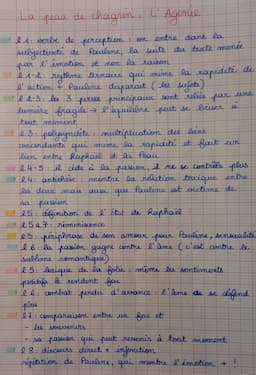 La peau de chagrin, L'Agonie
l 1: verbe de perception: on entre dans la
subjectivité de Pauline, la suite du texte menée
par l'émotion et non la raison
l 1-2: rythme ternaire qui mime la rapidité de
l'action + Pauline disparait (les sujets)
l 2-3: les 3 perso principaux sont reliés par une
lumière fragile → l'équilibre peut se briser à
tout moment
l 3: polysyndète: multiplication des liens
coordonnants qui mime la rapidité et fait un
lien entre Raphaël et la Peau
l 4-5: il cède à la passion, il ne se contrôle plus
l 4: antithèse: montre la relation tragique entre
les deux mais aussi que Pauline est victime de
sa passion
l 5: définition de l'état de Raphaël
l 5 à 7: réminiscence
l 5: périphrase de son amour pour Pauline, sensualité
l 6: la passion gagne contre l'âme (c'est contre le
sublime romantique)
l 5: lexique de la folie: même les sentiments
positifs le rendent fou
l 6: combat perdu d'avance: l'âme ne se défend
plus
l 7: comparaison entre un feu et
- les souvenirs
- sa passion qui peut revenir à tout moment
l 8: discours direct + injonction
répétition de Pauline, qui montre l'émotion + !